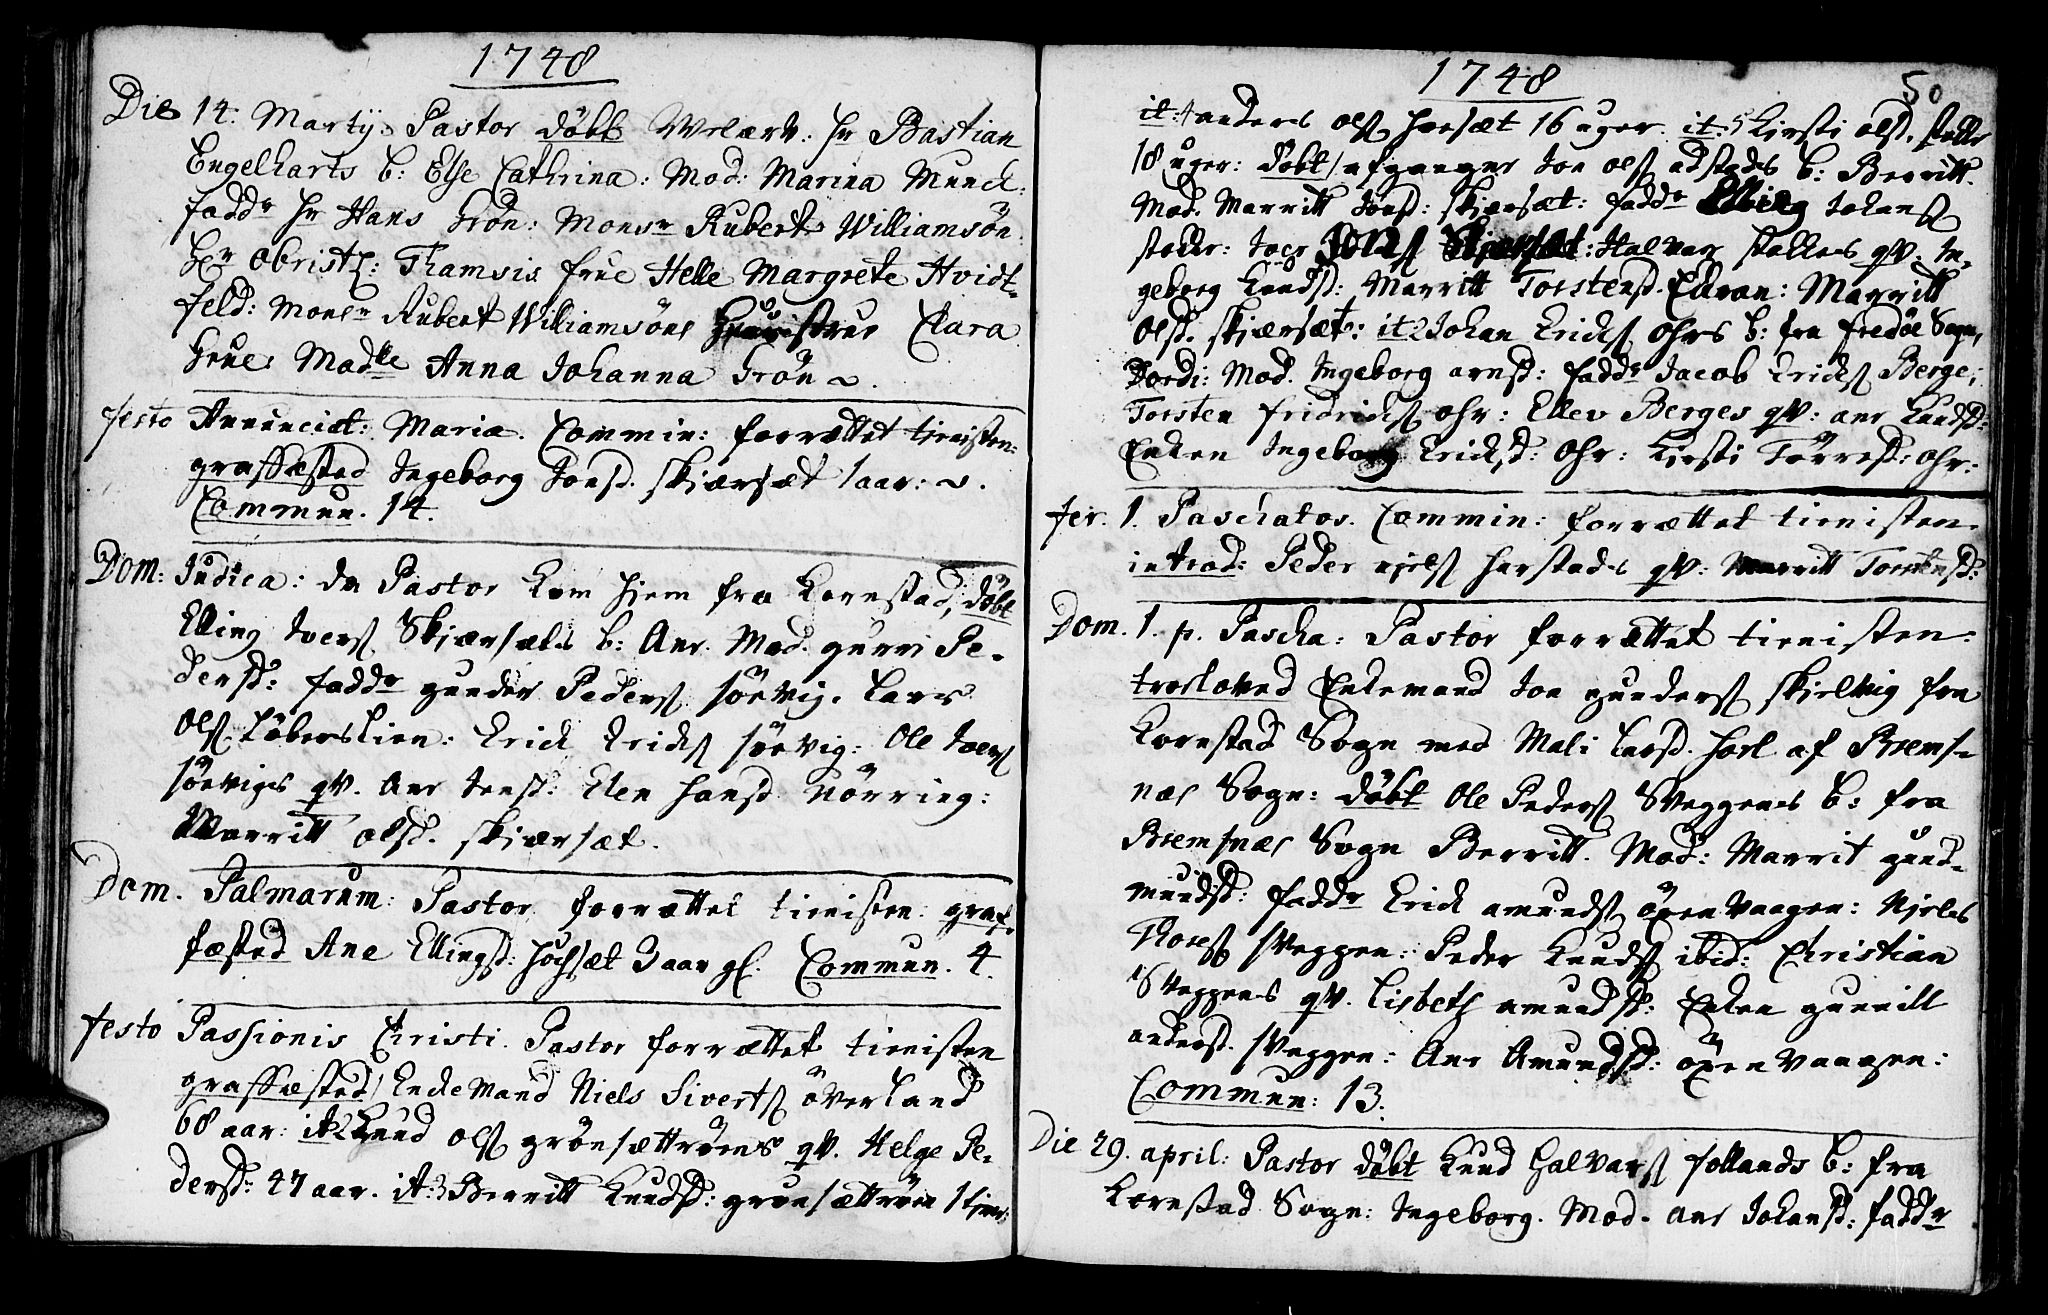 1748
Die 14. Martij. Pastor döbt Velærv. hr Bastian
Engelharts b: Else Cathrina: Mod: Marina Munch:
faddr hr Hans Grön: Monsr Rubert Williamsön
Hr Obristl: Thamsis frue Helle Margrete Hvidt-
feld: Monsr Rubert Williamsöns Clara
Grue Madlle Anna Johanna Grön.
festo Annunciat: Mariæ. Commin: forrættet tienisten:
graffæsted Ingeborg Jonsd. skiærsæt 1 aar.
Commun. 14.
Dom: Judica: da Pastor kom hiem fra Kornstad, döbt
Elling Ivers Skiærsæts b: Ane. Mod. gunri Pe-
dersd: faddr gunder Peders sörvig. Lars
Ols Löberslien: Erick Ericks sörvig: Ole Ivers
sörvigs qv. Ane Jensd: Elen hansd Nörring:
Marritt olsd. skiærsæt.
Dom. Palmarum: Pastor forrættet tienisten: graf-
fæsted Ane Ellingsd: höchsæt 3 aar gl. Commun. 4.
festo Passionis Christi. Pastor forrættet tienisten
graffæsted / Enckemand Niels Siverts överland
68 aar: it 2 Knud ols grönsættröens qv. Helge Pe-
dersd: 47 aar. it: 3 Berritt Knudsd: grönsættröen 1
1748
50
it: 4 anders ols horsæt 16 uger. it: 5 Kirsti olsd.
18 uger: döbt / afgangne Jon ols adstads b: Berritt.
Mod. Marritt Jonsd: skiærsæt: faddr Elling Johans
Jver Skiærsæt: Halvar stakkes qv. In-
geborg Knudsd: Marritt Torstensd. Marritt
Olsd. skiærsæt: it 2 Johan Ericks ohrs b: fra fredöe Sogn,
Dordi: Mod. Ingeborg arnsd: faddr Jacob Ericks Berge;
Torsten fridricks ohr: Ellev Berges qv: ane Knudsd:
Enken Ingeborg Ericksd: Ohr: Kirsti Törresd: ohr:
fer. 1. Paschatos. Commin: forrættet tienisten.
introd: Peder njels harstads qv: Marritt Torstensd:
Dom. 1. p. Pascha: Pastor forrættet tienisten:
trosloved Enkemand Jon gunders skielvig fra
Kornstad Sogn med Mali Larsd. hoel af Brems-
næs Sogn: döbt Ole Peders Sveggens b: fra
Bremsnæs Sogn Berritt. Mod: Marrit gund-
mundsd: faddr Erick amunds öxenvaagen: Njels
Thores sveggen: Peder Knuds ibid: Christian
Sveggens qv. Lisbeth amundsd: Enken gunnill
andersd. sveggen: Ane Amundsd: öxenvaagen:
Commun: 13.
Die 29. april: Pastor döbt Knud Halvars follands b: fra
Kornstad Sogn: Ingeborg. Mod. ane Johansd: faddr